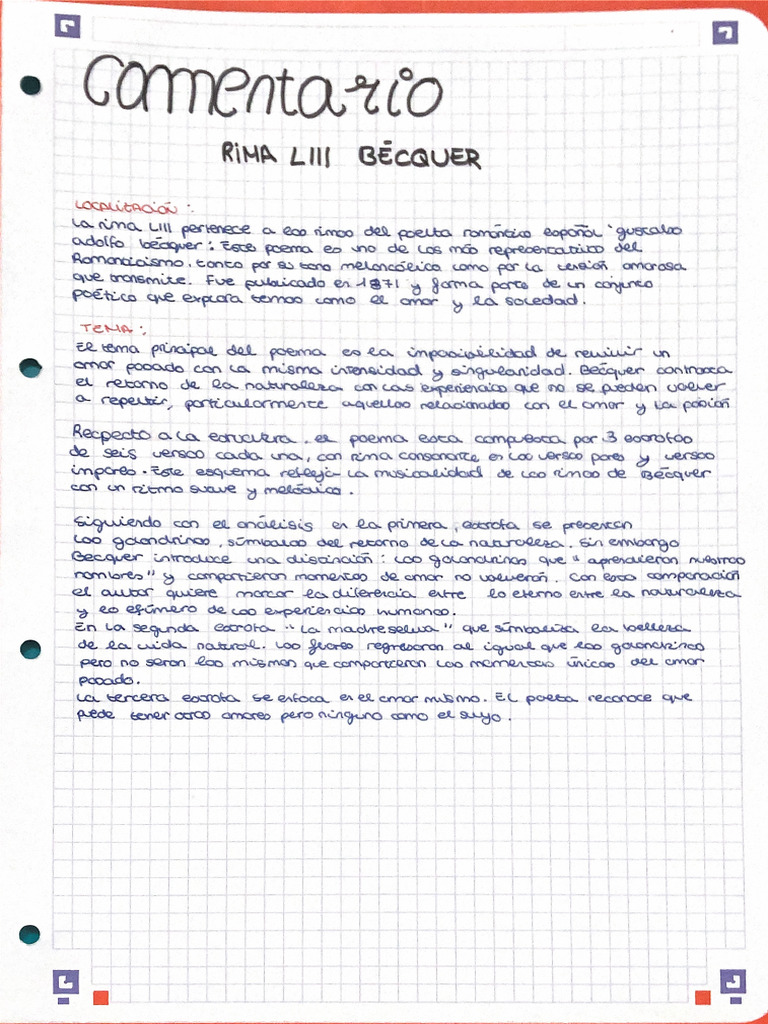 Comentario
RIMA LIII BÉCQUER
LOCALITACIÓN:
La rima LIII pertenece a las rimas del poeta romántico español gustabo
adolfo bécquer: Este poema es uno de los más representativo del
Romanticismo. tanto por su tono melancólico como por la versión amorosa
que transmite. Fue publicado en 1871 y forma parte de un conjunto
poético que explora temas como el amor y la soledad.
TEMA:
El tema principal del poema es la imposibilidad de revivir un
amor pasado con la misma intensidad y singularidad. Bécquer contrasta
el retorno de la naturaleza con las experiencias que no se pueden volver
a repetir, particularmente aquellos relacionados con el amor y la pasión
Respecto a la estructura, el poema esta compuesta por 3 estrofas
de seis versos cada una, con rima consonante en los versos pares y versos
impares. Este esquema refleja la musicalidad de las rimas de Bécquer
con un ritmo suave y melódico.
Siguiendo con el análisis en la primera, estrofa se presentan
las golondrinas, símbalos del retorno de la naturaleza. Sin embargo
Becquer introduce una distinción: las golondrinas que "aprendieron nuestros
nombres" y compartieron momentos de amor no volverón. Con esta comparación
el autor quiere marcar la diferencia entre lo eterno entre la naturaleza
y lo efímero de las experiencias humanas.
En la segunda estrofa "La madreselva" que simboliza la belleza
de la vida natural. Las flores regresaran al igual que las golondrinas
pero no seran las mismas que compartieron los momentos únicos del amor
pasado.
La tercera estrofa se enfoca en el amor mismo. El poeta reconoce que
puede tener otros amores pero ninguno como el suyo.